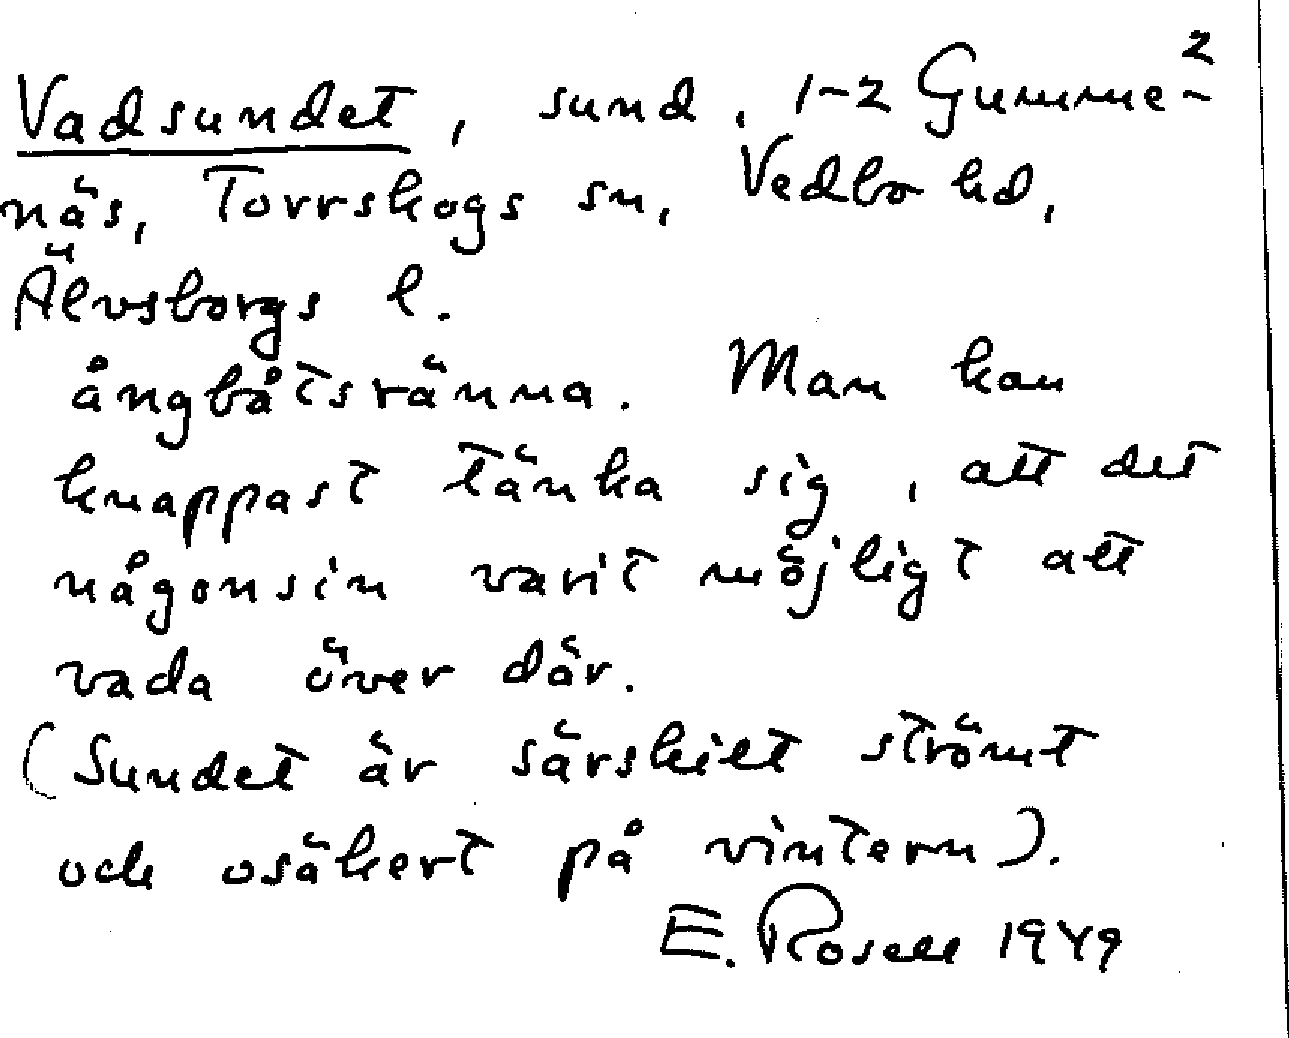 Vadsundet, sund, 1-2 Gumme-²
näs, Torrskogs sn, Vedbo hd,
Älvsborgs l.
ångbåtsränna. Man kan
knappast tänka sig, att det
någonsin varit möjligt att
vada över där.
(Sundet är särskilt strömt
och osäkert på vintern).
E. Rosell 1949